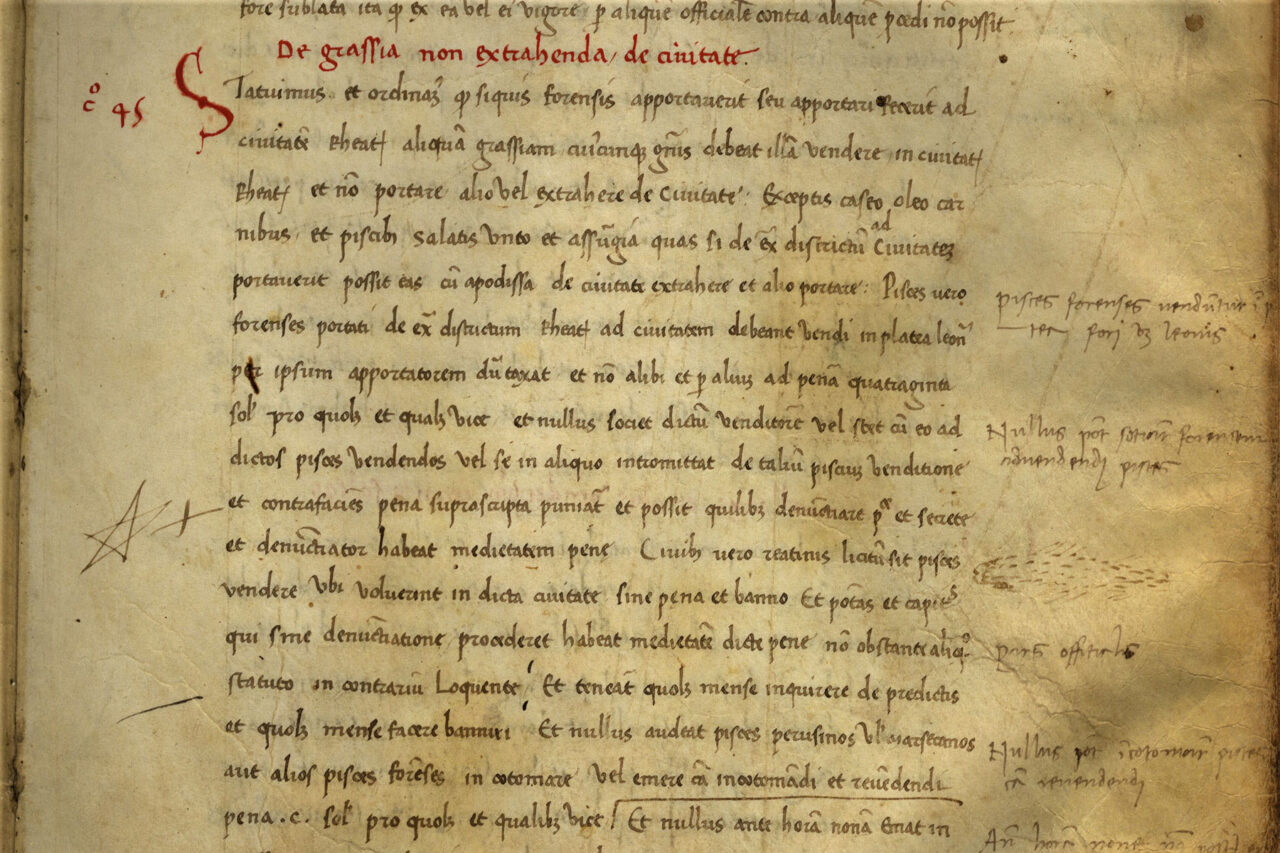 fore sublata ita q ex ea vel ei vigore p aliquē officialē contra aliquem pcedi nō possit
De grassia non extrahenda de ciuitate.
cº 45
Statuimus et ordinam9 q siquis forensis apportauerit seu apportari fecerit ad
ciuitatē Rheat aliquā grassiam cuiuscunq gn̄is debeat illā vendere in ciuitat
Rheat et nō portare alio vel extrahere de Ciuitate: Exceptis caseo oleo car
nibus et piscib salatis Vnto et assūgia quas si de ext districtū ad Ciuitatez
portauerit possit eas cū apodissa de ciuitate extrahere et alio portare: Pisces vero
forenses portati de ext districtum Rheat ad ciuitatem debeant vendi in platea leoñ
per ipsum apportatorem dūtaxat et nō alibi et p aliuz ad penā quatraginta
sol pro quolz et qualz vice et nullus societ dictū venditorē vel stet cū eo ad
dictos pisces vendendos vel se in aliquo intromittat de taliū pisciuz venditione
et contrafaciēs pena suprascripta puniat et possit quilibz denūctiare et secrete
et denūctiator habeat medietatem pene Ciuib vero reatinis licitū sit pisces
vendere Vbi voluerint in dicta ciuitate sine pena et banno Et potas et capits
qui sine denūctiatione procederet habeat medietatē dicte pene nō obstante aliq
statuto in contrariū Loquente Et teneāt quolz mense inquirere de predictis
et quolz mense facere banniri Et nullus audeat pisces perusinos Vl marsecanos
aut alios pisces forēses in cotomare vel emere cā incotomādi et reuēdendi
pena .c. sol pro quolz et qualibz vice Et nullus ante horā nonā Emat in
pisces forenses vendūtur ī
fori vz leonis
Nullus pōt
pisces
pars offitialis
Nullus pōt īcotomare pisces
cā reuendendi